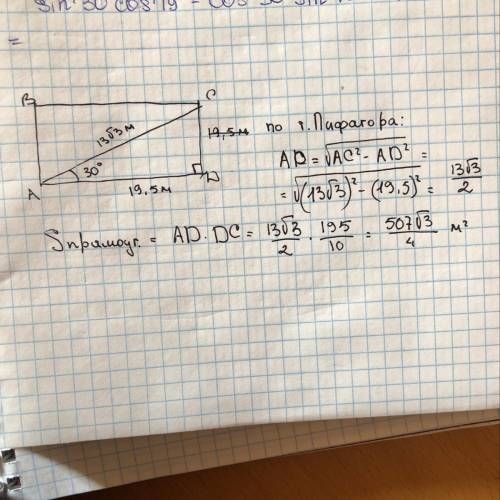 sin 30 cos 19 - cos 30 sin
=
B C
13√3 м
19,5 м
30°
A D
19.5 м
по т. Пифагора:
AD = √AC² - AD² =
= √(13√3)² - (19.5)² = 13√3/2
Sпрямоуг. = AD · DC = 13√3/2 · 195/10 = 507√3/4 м²